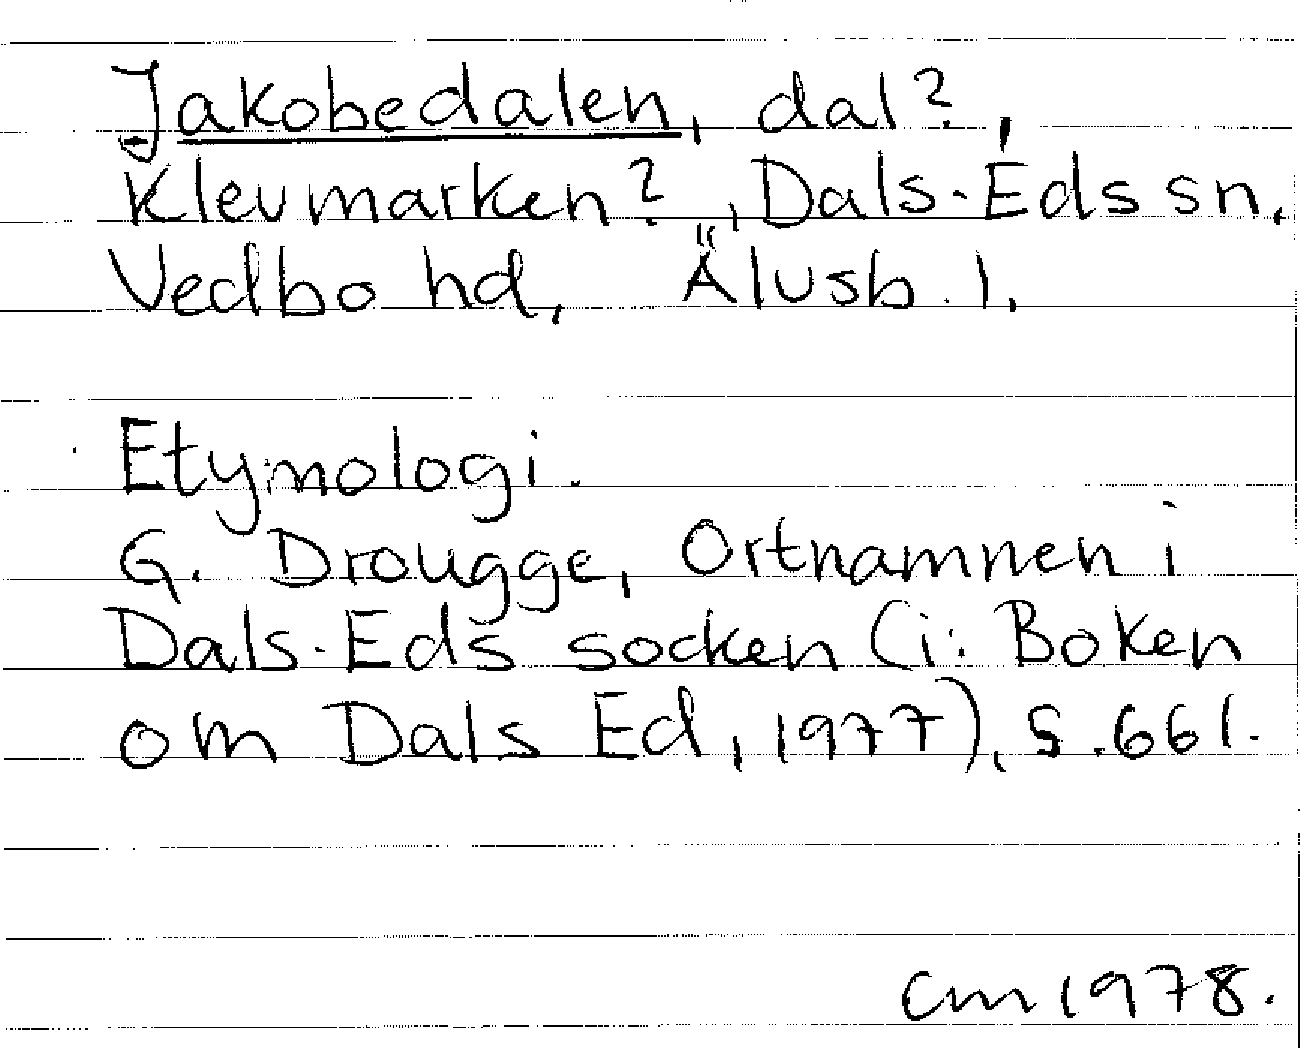 Jakobedalen, dal?,
Klevmarken?, Dals-Eds sn.
Vedbo hd, Älvsb. l.
Etymologi.
G. Drougge, Ortnamnen i
Dals-Eds socken (i: Boken
om Dals Ed, 1977), s. 661.
CM 1978.